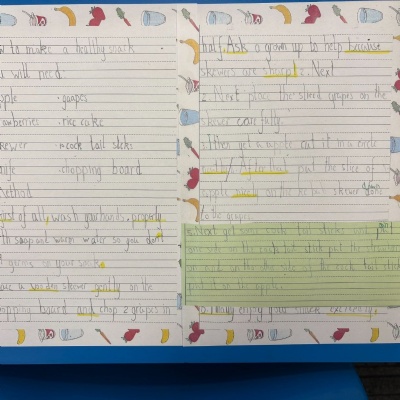 w to make a healthy snack
u will need:
pple · grapes
rawberries · rice cake
kewer · cock tail sticks
nife · chopping board
Method
gist of all, wash your hands, properly
th soap and warm water so you don't
germs so your snack.
lace a wooden skewer gently on the
opping board and chop 2 grapes in
half. Ask a grown up to help because
skewers are sharp! 2. Next
2. Next place the sliced grapes on the
skewer carefully.
3. Then get a apple cut it in a circle
After that put the slice of
apple nicely on the skewer down
to the grapes
5. Next get some cock tail sticks and put
one on the cock tail stick put the
on end on the other side of the cock tail stick
put it on the apple.
6. Finally enjoy your snack